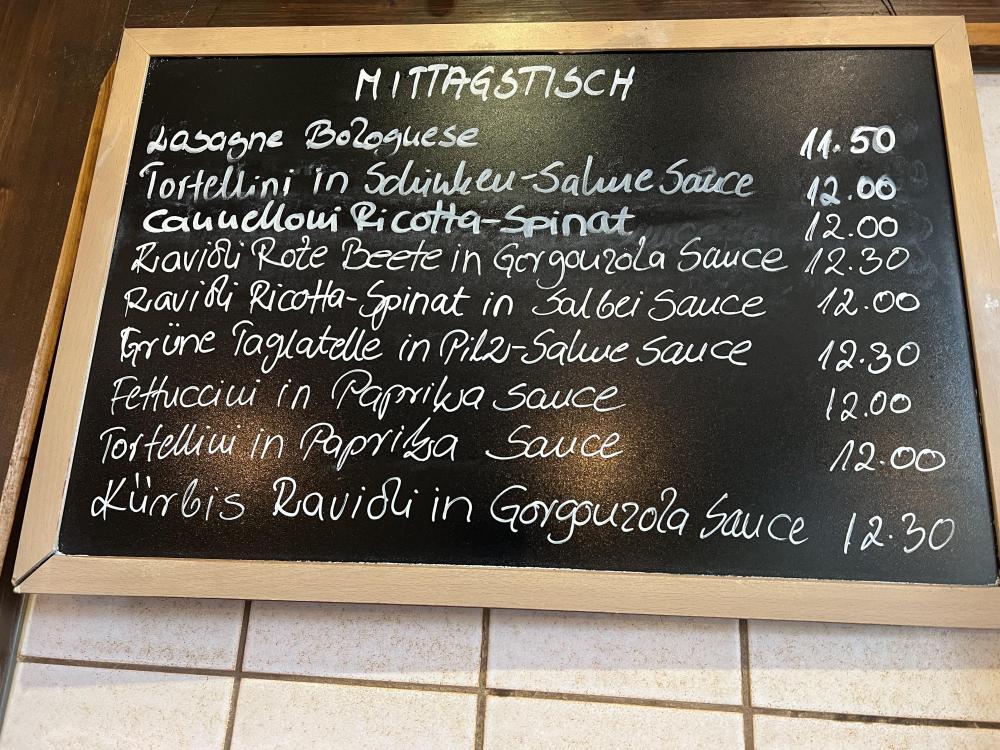 MITTAGSTISCH
Lasagne Bolognese 11.50
Tortellini in Schinken-Sahne Sauce 12.00
Cannelloni Ricotta-Spinat 12.00
Ravioli Rote Beete in Gorgonzola Sauce 12.30
Ravioli Ricotta-Spinat in Salbei Sauce 12.00
Grüne Taglatelle in Pilz-Sahne Sauce 12.30
Fettuccini in Paprika Sauce 12.00
Tortellini in Paprika Sauce 12.00
Kürbis Ravioli in Gorgonzola Sauce 12.30